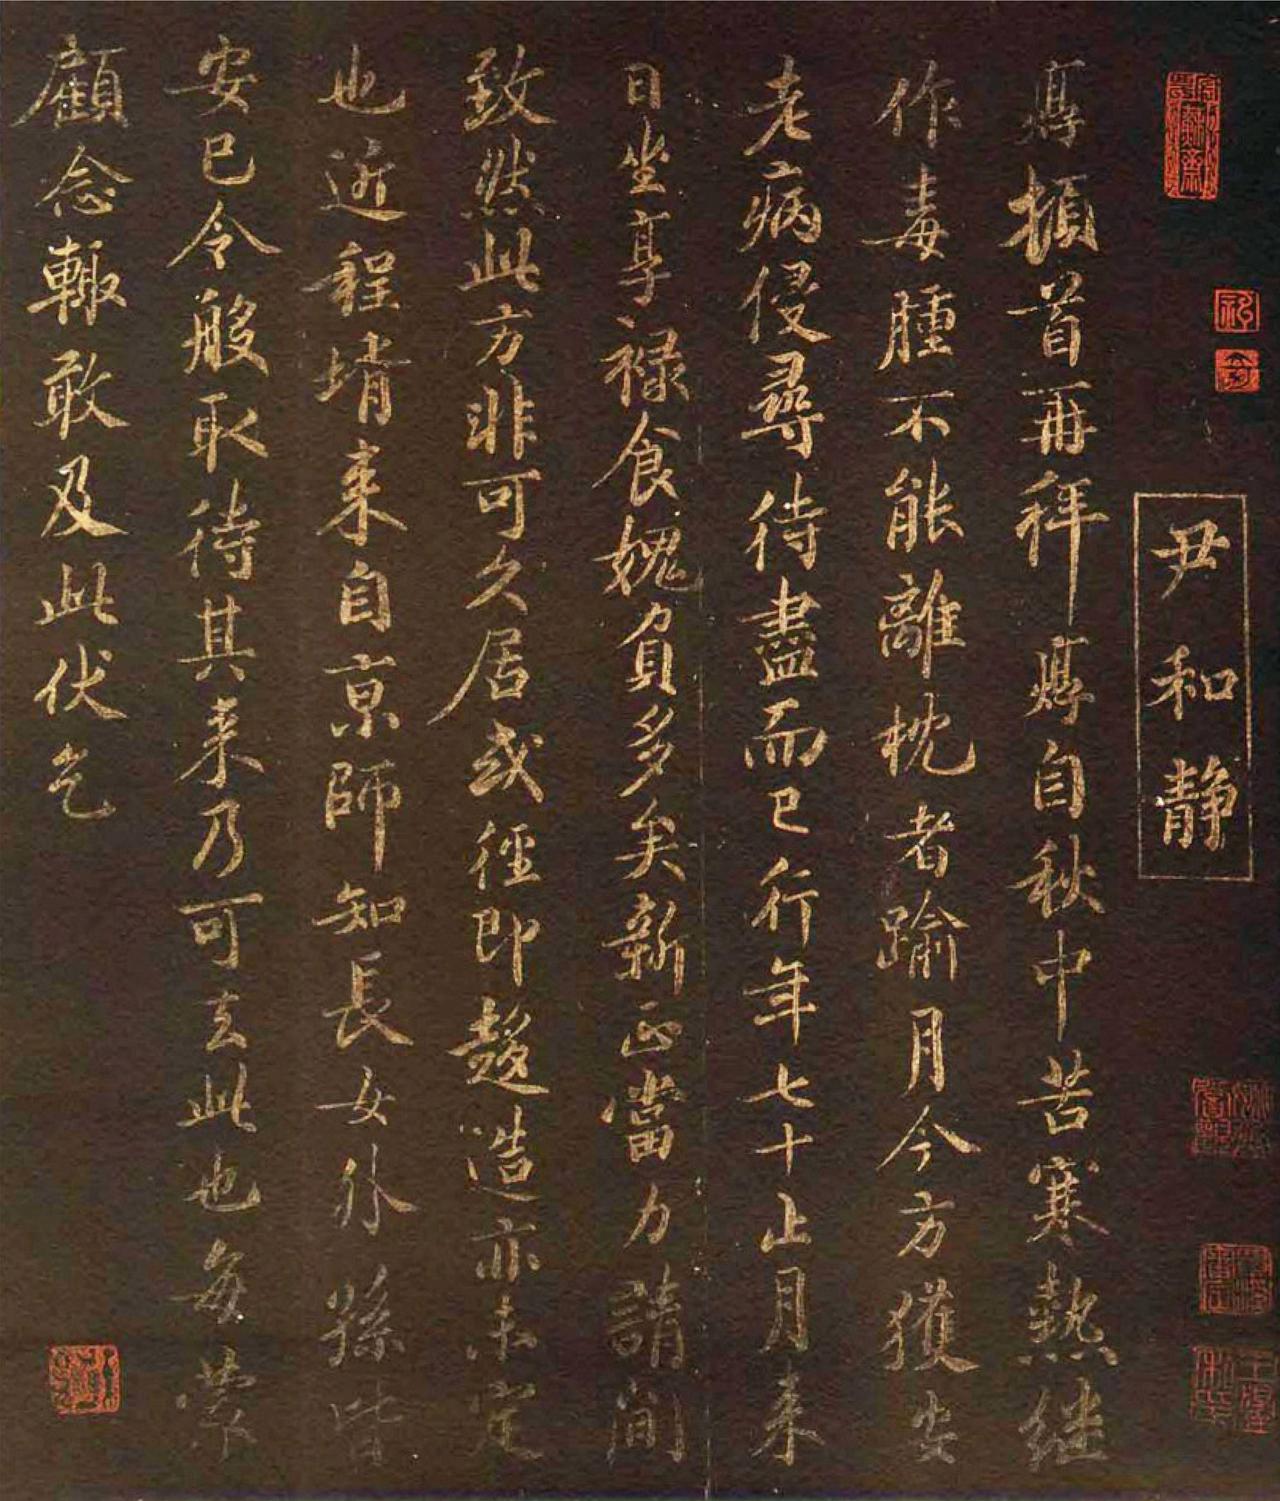 尹和静
焞頓首再拜焞自秋中苦寒熱继
作毒腫不能離枕者踰月今方獲安
老病侵尋待盡而已行年七十止月来
日坐享禄食媿負多矣新正當力請閒
致然此方非可久居或徑即趍造亦未定
也近程壻来自京師知長女外孫皆
安已令般取待其来乃可去此也每蒙
顧念輙敢及此伏乞